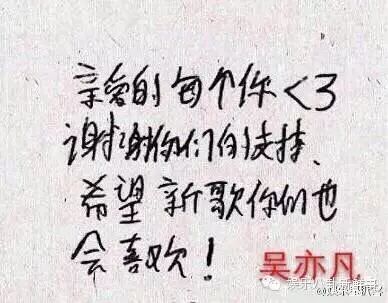 亲爱的每个你<3
谢谢你们的支持、
希望新歌你们也
会喜欢！
吴亦凡